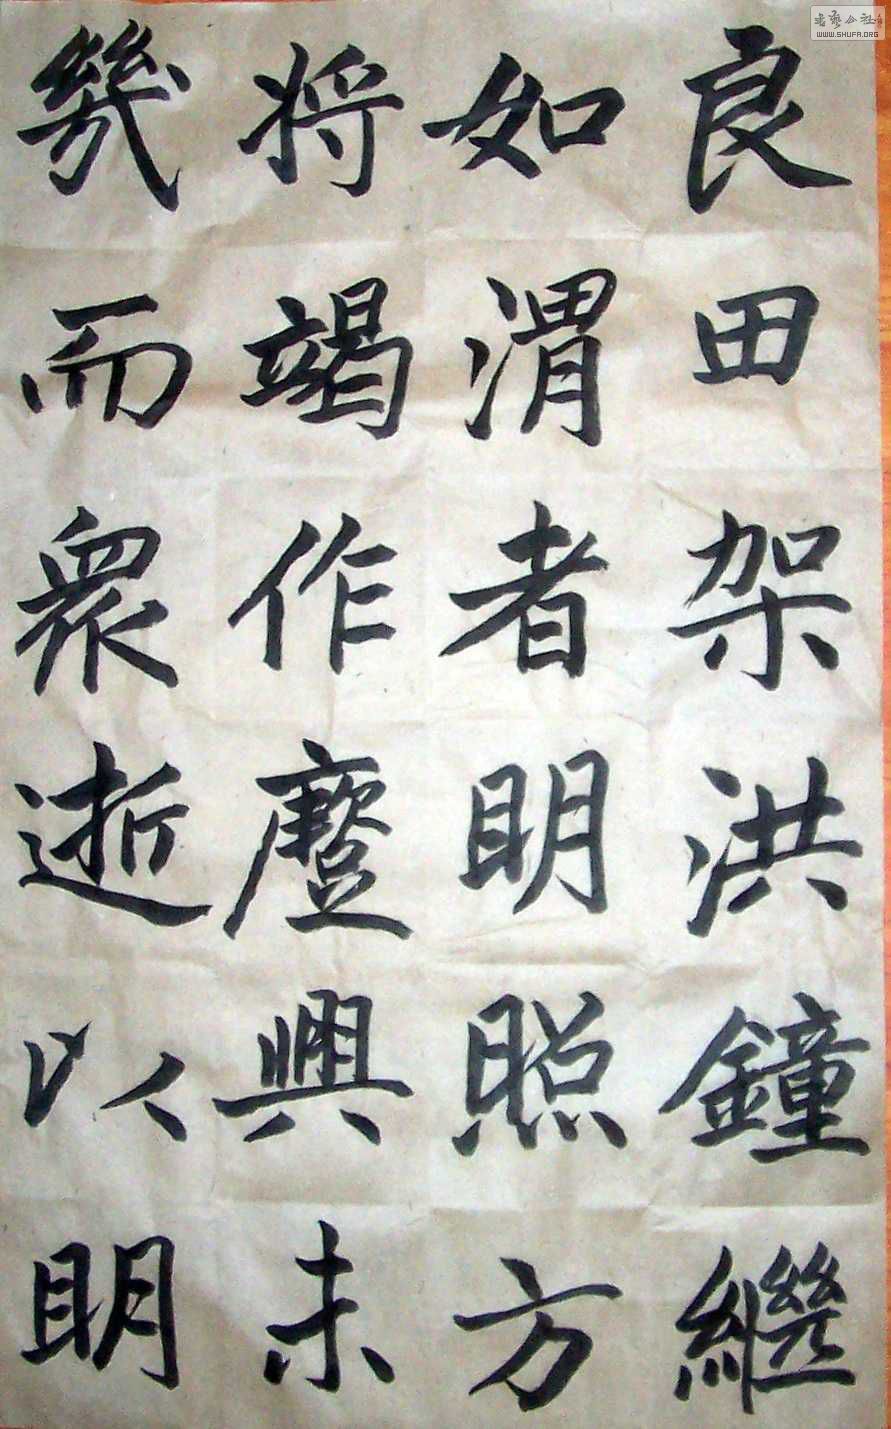 良田架洪鐘繼
如渭者眀照方
将竭作興未
幾而眾逝以眀
書藝公社
WWW.SHUFA.ORG